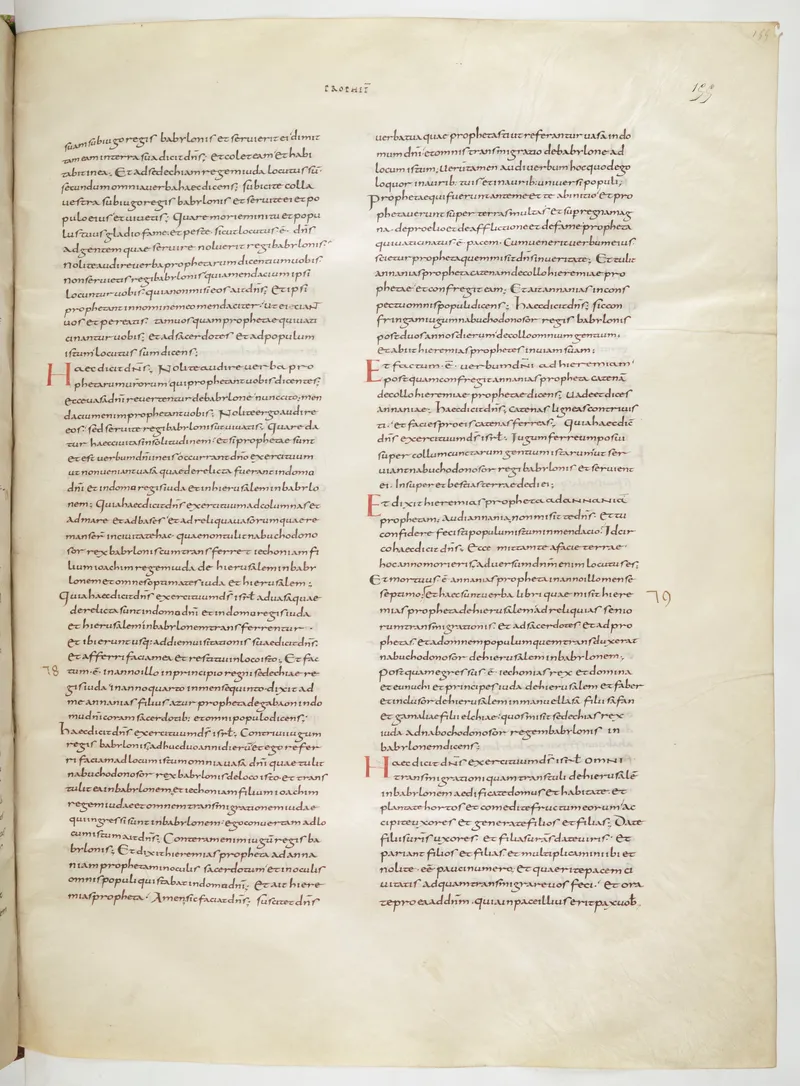 ꝓPHET̄
199
suam subiugo regis babylonis et seruierit ei dimit
tam eam interra sua dicit dn̄s; et colet eam et habi
tabit inea; Et ad sedechiam regem iuda locutus sū
secundum omnia uerba haec dicens; subicite colla
uestra sub iugo regis babylonis et seruite ei et po
pulo eius et uiuetis; Quare moriemini tu et popu
lus tuus gladio fame et peste; sicut locutus ē dn̄s
ad gentem quae seruire noluerit regi babylonis
nolite audire uerba prophetarum dicentium uobis
non seruietis regi babylonis quia mendacium ipsi
locuntur uobis; quia non misi eos ait dn̄s; et ipsi
prophetant in nomine meo mendaciter; ut eiciant
uos et pereatis; tam uos quam prophetae qui uati
cinantur uobis; et ad sacerdotes et ad populum
istum locutus sum dicens;
Haec dicit dn̄s; Nolite audire uerba pro
phetarum urorum qui prophetant uobis dicentes;
ecce uasa dn̄i reuertentur de babylone nunc cito; men
dacium enim prophetant uobis; Nolite ergo audire
eos; sed seruite regi babylonis ut uiuatis; Quare da
tur haec ciuitas in solitudinem; et si prophetae sunt
et est uerbum dn̄i in eis occurrant dn̄o exercituum
ut non ueniant uasa quae derelicta fuerant in domo
dn̄i et in domo regis iuda et in hierusalem in babylo
nem; Quia haec dicit dn̄s exercituum ad columnas et
ad mare et ad bases et ad reliqua uasorum quae re
manser̄ in ciuitate hac quae non tulit nabuchodono
sor rex babylonis cum transferret iechoniam fi
lium ioachim regem iuda de hierusalem in baby
lonem et omnes optimates iuda et hierusalem;
Quia haec dicit dn̄s exercituum ds̄ isrl̄ ad uasa quae
derelicta sunt in domo dn̄i et in domo regis iuda
et hierusalem in babylonem transferrentur
et ibi erunt usq; ad diem uisitationis suae dicit dn̄s;
et afferri faciam ea et restitui in loco isto; Et fac
tum ē in anno illo in principio regni sedechiae re
gis iuda in anno quarto in mense quinto dixit ad
me annanias filius azur propheta de gabaon in do
mu dn̄i coram sacerdotib; et omni populo dicens;
haec dicit dn̄s exercituum ds̄ isrl̄; Contriui iugum
regis babylonis; adhuc duo anni dierū et ego refer
ri faciam ad locum istum omnia uasa dn̄i quae tulit
nabuchodonosor rex babylonis de loco isto et trans
tulit ea in babylonem; et iechoniam filium ioachim
regem iudae et omnem transmigrationem iudae
qui ingressi sunt in babylonem; ego conuertam ad lo
cum istum ait dn̄s; Conteram enim iugū regis ba
bylonis; Et dixit hieremias propheta ad anna
niam prophetam in oculis sacerdotum et in oculis
omnis populi qui stabat in domo dn̄i; Et ait hiere
mias propheta; Amen sic faciat dn̄s; suscitet dn̄s
78
uerba tua quae prophetasti ut referantur uasa in do
mum dn̄i et omnis transmigratio de babylone ad
locum istum; Uerumtamen audi uerbum hoc quod ego
loquor in aurib; tuis et in aurib; uniuersi populi;
Prophetae qui fuerunt ante me et te ab initio et pro
phetauerunt super terras multas et sup regna mag
na de proelio et de afflictione et de fame; propheta
qui uaticinatus ē pacem cum uenerit uerbum eius
scietur propheta quem misit dn̄s in ueritate; Et tulit
annanias propheta catenam de collo hieremiae pro
phetae et confregit eam; Et ait annanias in cons
pectu omnis populi dicens; haec dicit dn̄s; sic con
fringam iugum nabuchodonosor regis babylonis
post duos annos dierum de collo omnium gentium;
et abiit hieremias prophetes in uiam suam;
Et factum ē uerbum dn̄i ad hieremiam
postquam confregit annanias propheta catenā
de collo hieremiae prophetae dicens; Uade et dices
annaniae; haec dicit dn̄s; catenas ligneas contriuis
ti; et facies pro eis catenas ferreas; Quia haec dic̄
dn̄s exercituum ds̄ isrl̄; Iugum ferreum posui
super collum cunctarum gentium istarum; ut ser
uiant nabuchodonosor regi babylonis et seruient
ei; Insuper et bestias terrae dedi ei;
Et dixit hieremias propheta ad annania
prophetam; audi annania; non misit te dn̄s; et tu
confidere fecisti populum istum in mendacio; Idcir
co haec dicit dn̄s; Ecce mittam te a facie terrae
hoc anno morieris; aduersum dnm̄ enim locutus es;
Et mortuus ē annanias propheta in anno illo mense
septimo; Et haec sunt uerba libri quae misit hiere
mias propheta de hierusalem ad reliquias senio
rum transmigrationis; et ad sacerdotes et ad pro
phetas et ad omnem populum quem transduxerat
nabuchodonosor de hierusalem in babylonem;
postquam egressus ē iechonias rex et domina
et eunuchi et principes iuda de hierusalem et faber
et inclusor de hierusalem in manu ellasa filii safan
et gamaliae filii elchiae; quos misit sedechias rex
iuda ad nabochodonosor regem babylonis in
babylonem dicens;
Haec dicit dn̄s exercituum ds̄ isrl̄ omni
transmigrationi quam transtuli de hierusalē
in babylonem aedificate domus et habitate et
plantate hortos et comedite fructum eorum; Ac
cipite uxores et generate filios et filias; Date
filiis uris̄ uxores et filias uras̄ date uiris; et
pariant filios et filias et multiplicamini ibi et
nolite eē pauci numero; et quaerite pacem ci
uitatis ad quam transmigrare uos feci; et ora
te pro ea ad dnm̄ quia in pace illius erit pax uob̄
79